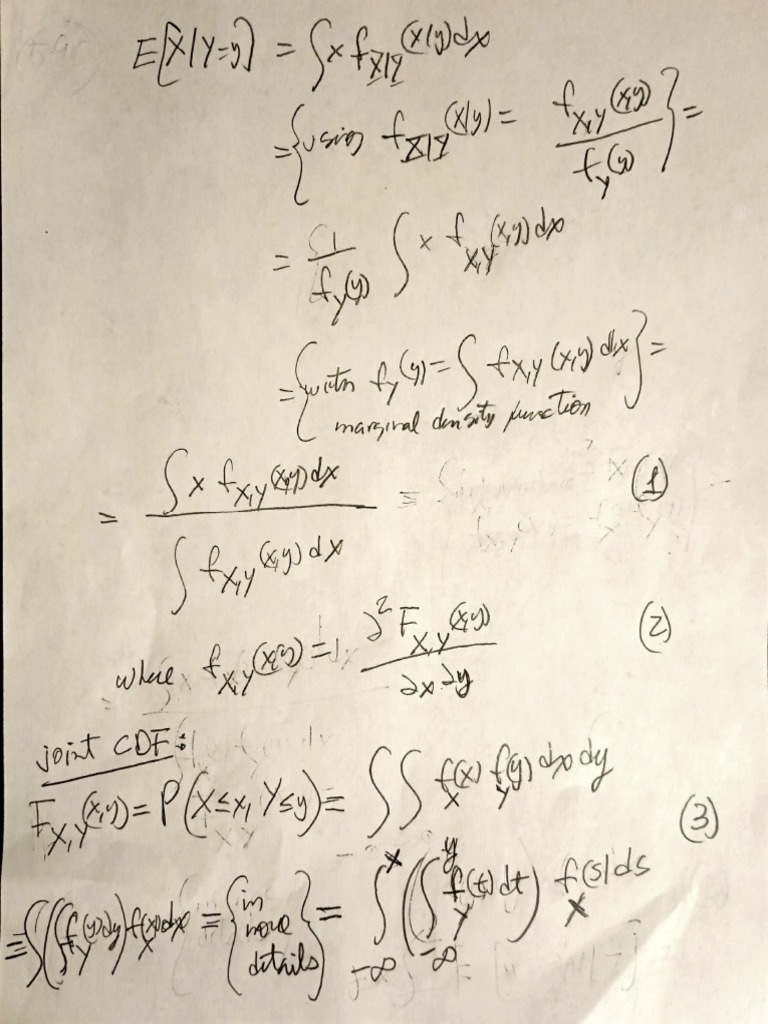 E[X|Y=y] = ∫ x f_{X|Y}(x|y) dx
= { using f_{X|Y}(x|y) = \frac{f_{X,Y}(x,y)}{f_Y(y)} } =
= \frac{1}{f_Y(y)} ∫ x f_{X,Y}(x,y) dx
= { with f_Y(y) = ∫ f_{X,Y}(x,y) dx } =
marginal density function
= \frac{∫ x f_{X,Y}(x,y) dx}{∫ f_{X,Y}(x,y) dx} (1)
where f_{X,Y}(x,y) = \frac{∂^2 F_{X,Y}(x,y)}{∂x ∂y} (2)
joint CDF:
F_{X,Y}(x,y) = P(X≤x, Y≤y) = ∫∫ f_X(x) f_Y(y) dx dy (3)
≡ ∫(∫ f_Y(y) dy) f_X(x) dx ≡ { in more details } = ∫_{-∞}^{x} (∫_{-∞}^{y} f_Y(t) dt) f_X(s) ds